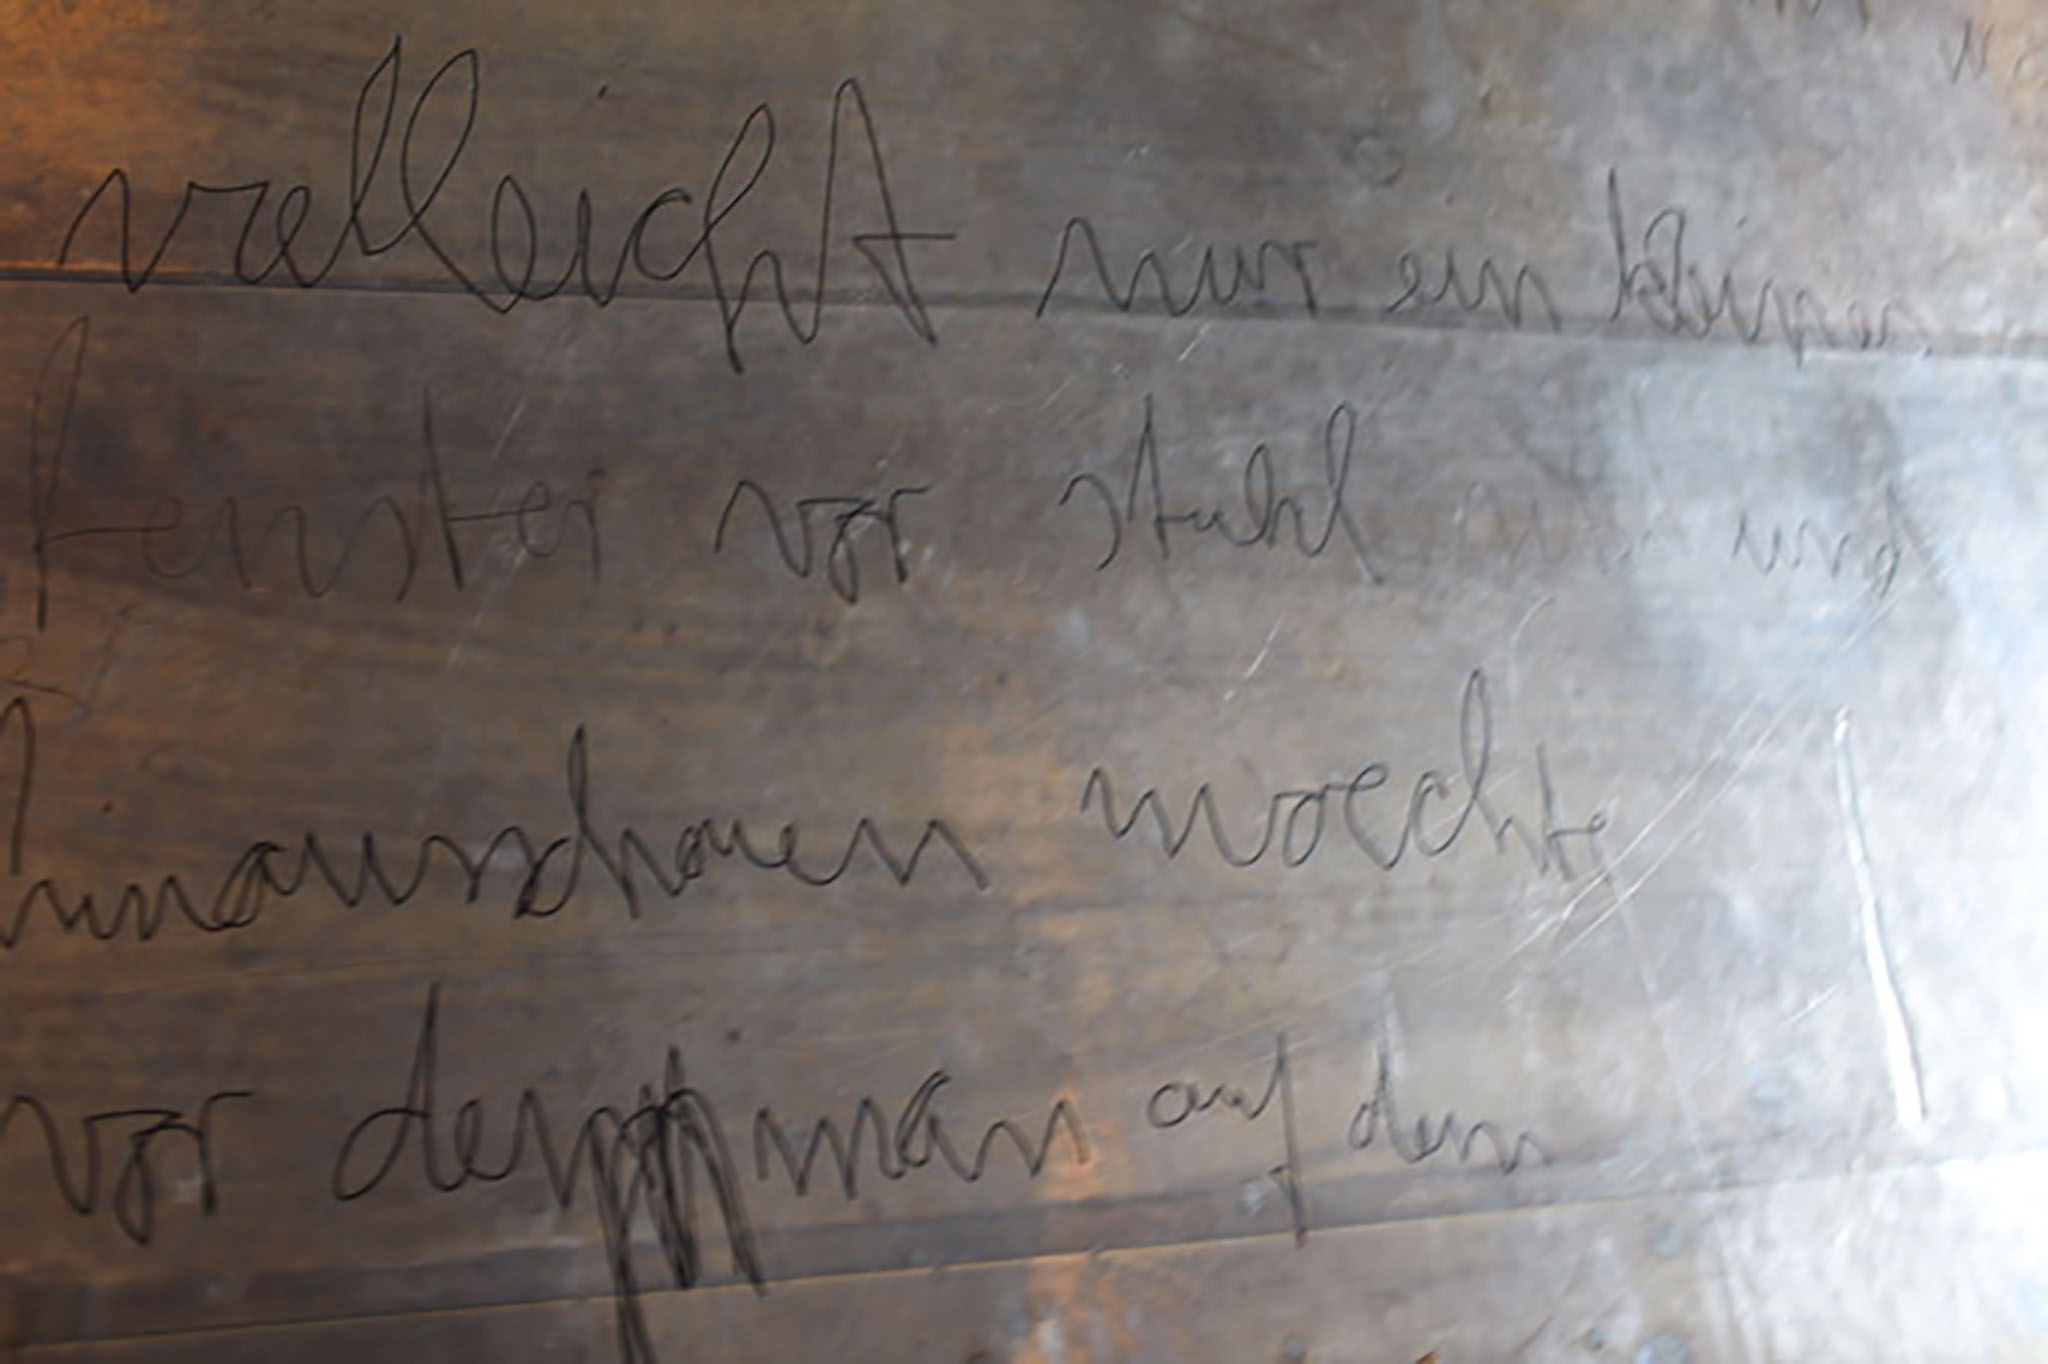 vielleicht nur ein kleines
fenster vor stuhl und
hinausschauen moechte
vor dem man auf dem